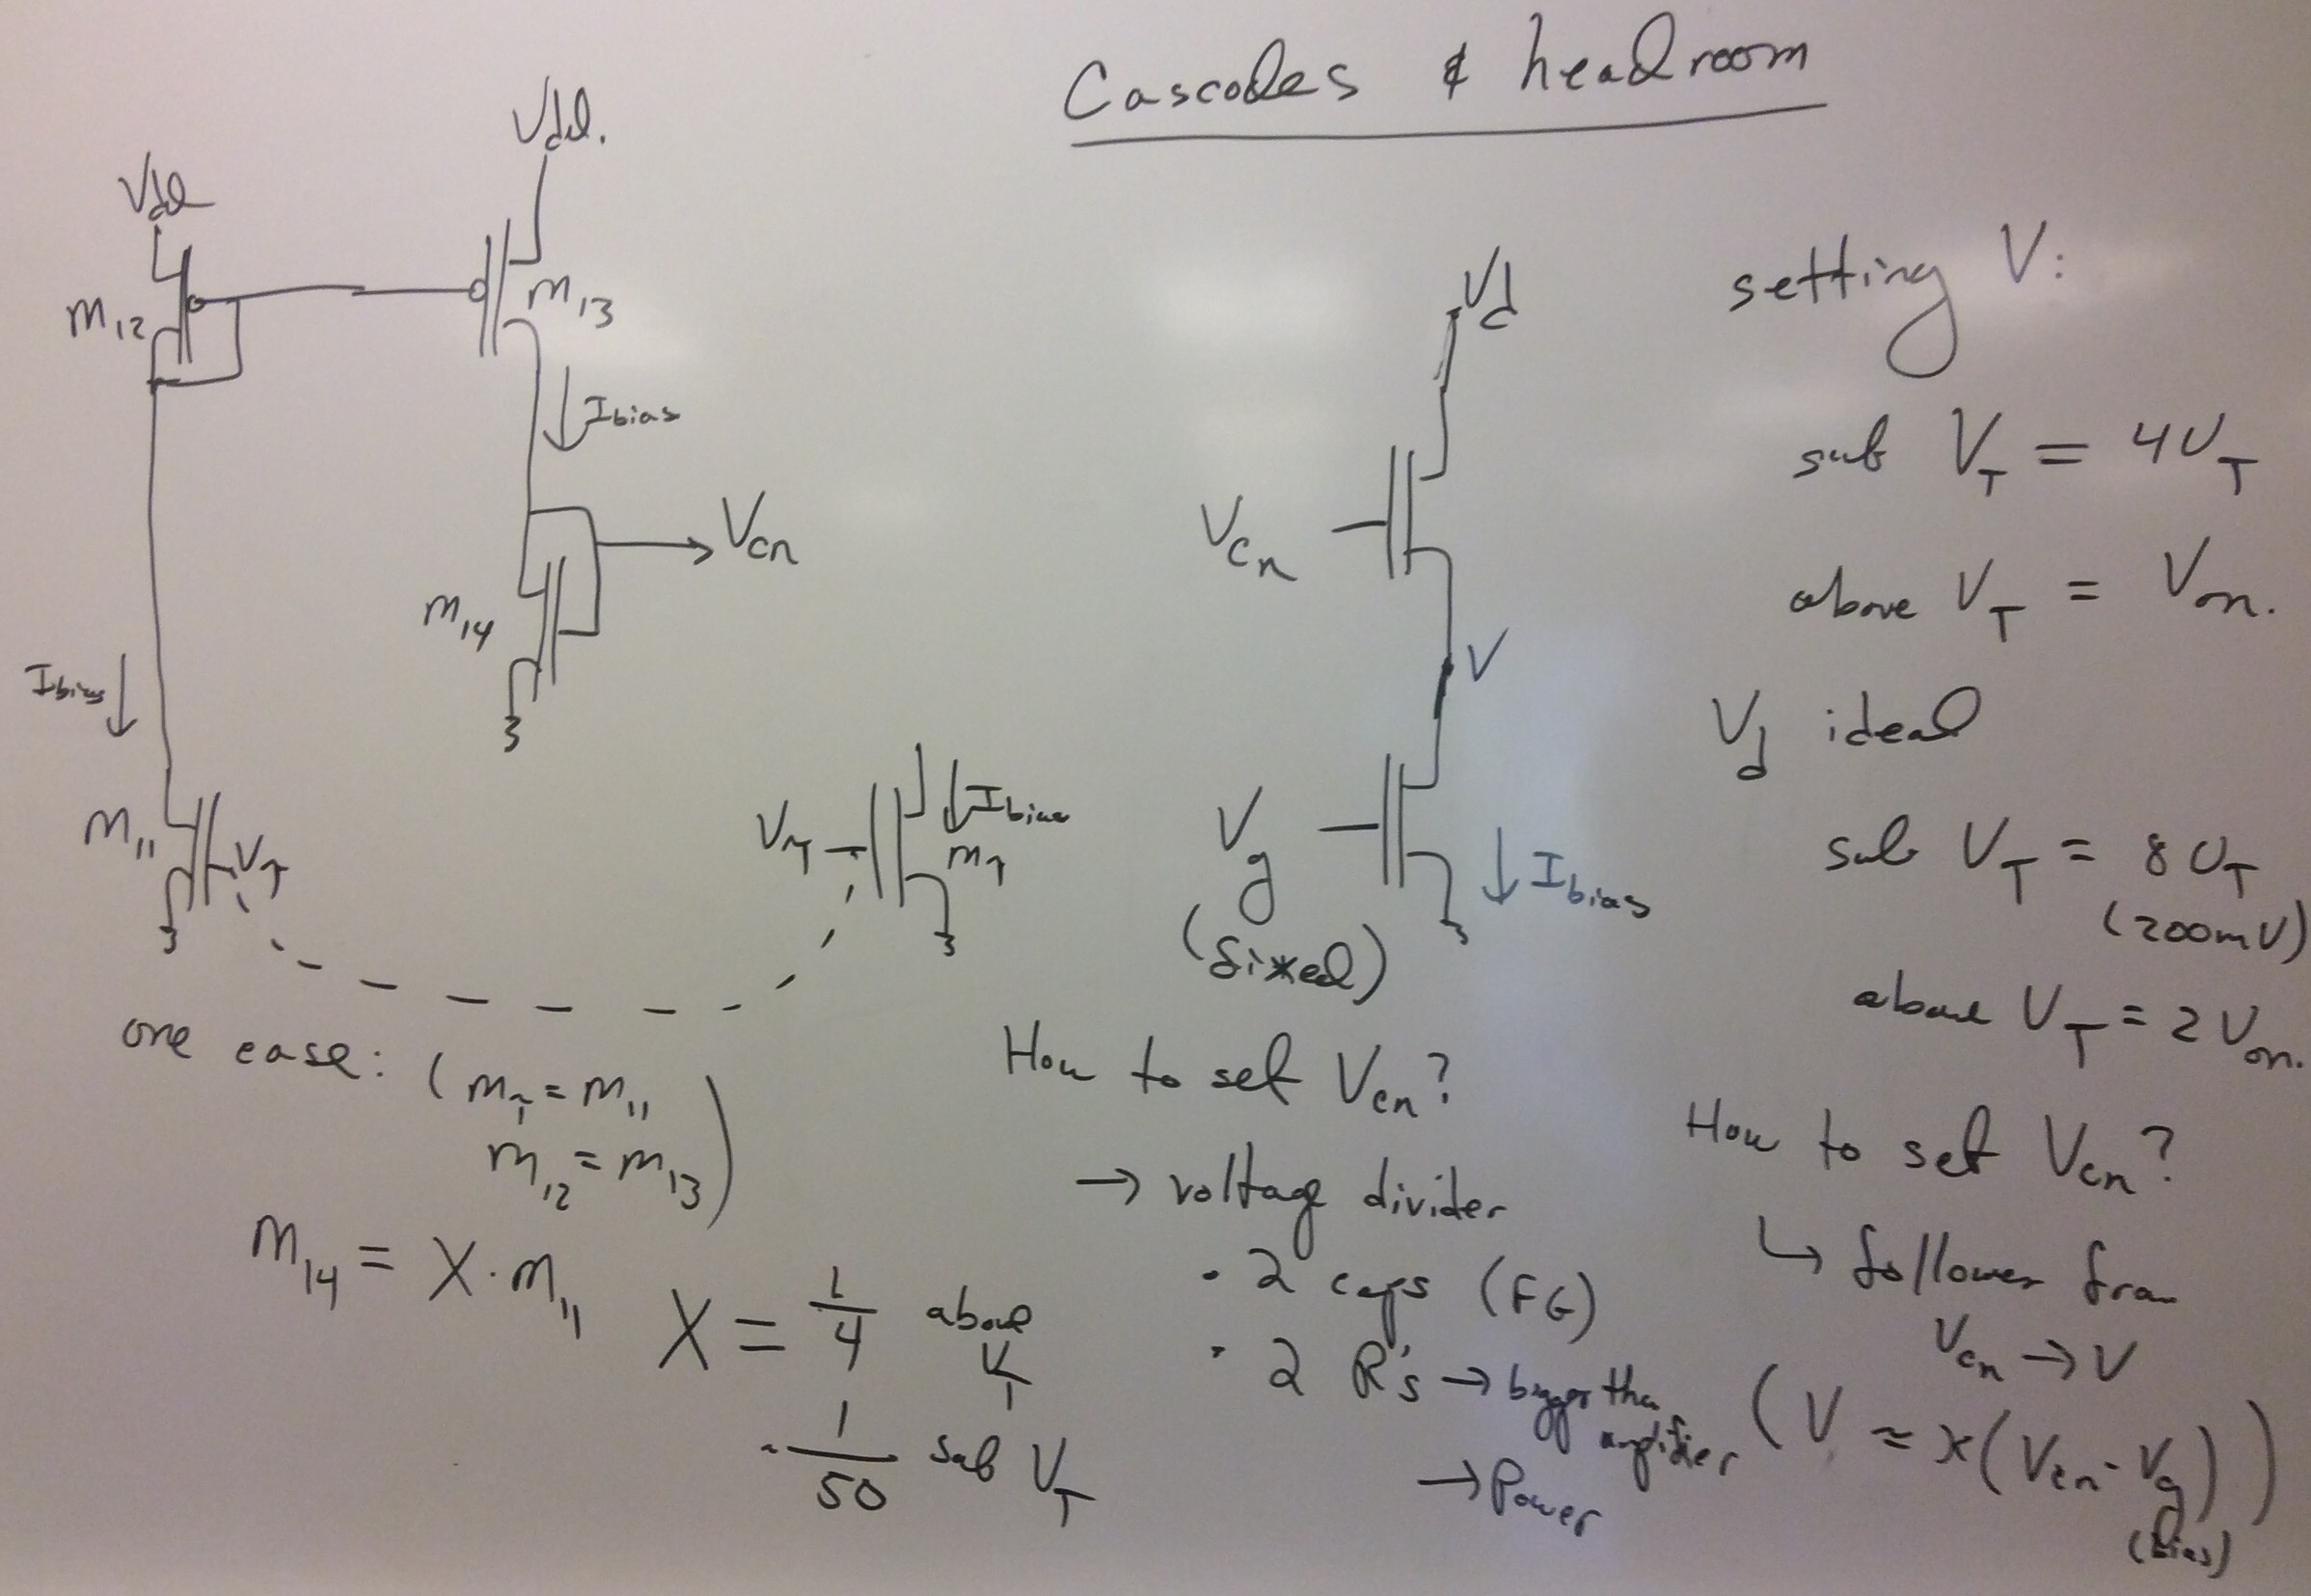 Cascodes & headroom
Vdd
Vdd.
M12
M13
Ibias
Vcn
M14
Ibias
M11
Vτ
Vτ
Ibias
Mτ
one case: (Mτ = M11
M12 = M13)
M14 = X · M11
X = 1/4 above VT
~ 1/50 sub VT
Vd
Vcn
V
Vg
(fixed)
Ibias
How to set Vcn?
→ voltage divider
• 2 caps (FG)
• 2 R's → bigger than amplifier
→ Power
setting V:
sub VT = 4UT
above VT = Von.
Vd ideal
sub VT = 8UT
(200mV)
above VT = 2Von.
How to set Vcn?
↳ follower from
Vcn → V
(V ≈ κ(Vcn - Vg))
(bias)